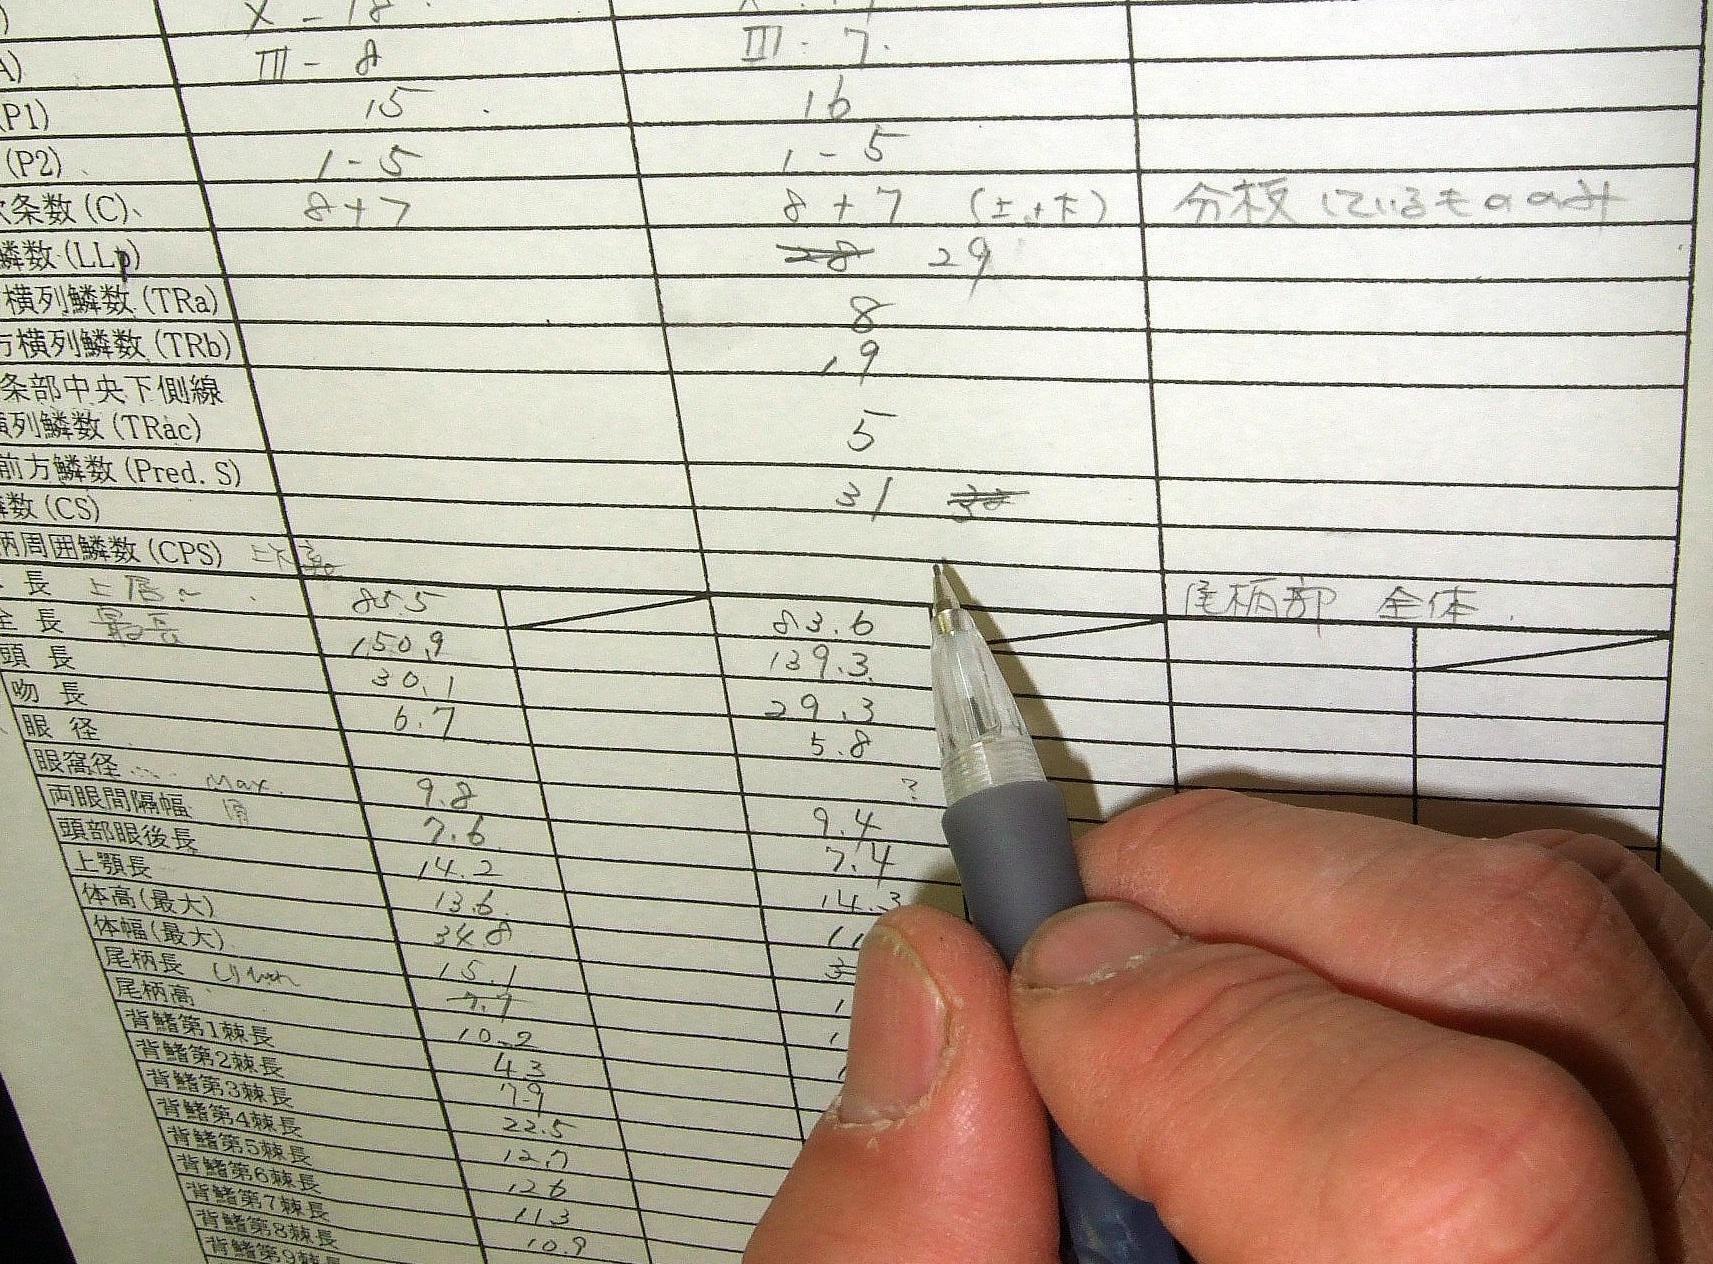 A) III - 8 III - 7
(P1) 15 16
(P2) 1 - 5 1 - 5
条数(C) 8+7 8+7 (上+下) 分枝しているもののみ
鱗数(LLp) 28 29
横列鱗数(TRa) 8
方横列鱗数(TRb) 19
条部中央下側線
横列鱗数(TRac) 5
前方鱗数(Pred. S)
鱗数(CS) 31
柄周囲鱗数(CPS) 尾柄部 全体
長 85.5 83.6
全長 最長 150.9 139.3
頭長 30.1 29.3
吻長 6.7 5.8
眼径 ?
眼窩径 Max. 9.8 9.4
両眼間隔幅 7.6 7.4
頭部眼後長 14.2 14.3
上顎長 13.6 11
体高(最大) 34.8
体幅(最大) 15.1
尾柄長 7.7
尾柄高 10.2
背鰭第1棘長 4.3
背鰭第2棘長 7.9
背鰭第3棘長 22.5
背鰭第4棘長 12.7
背鰭第5棘長 12.6
背鰭第6棘長 11.3
背鰭第7棘長 10.9
背鰭第8棘長
背鰭第9棘長